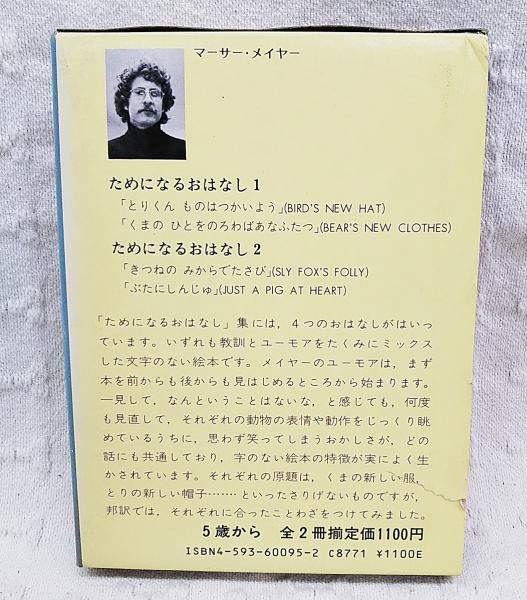 マーサー・メイヤー
ためになるおはなし1
「とりくん ものはつかいよう」(BIRD'S NEW HAT)
「くまの ひとをのろわばあなふたつ」(BEAR'S NEW CLOTHES)
ためになるおはなし2
「きつねの みからでたさび」(SLY FOX'S FOLLY)
「ぶたにしんじゅ」(JUST A PIG AT HEART)
「ためになるおはなし」集には，4つのおはなしがはいっ
ています。いずれも教訓とユーモアをたくみにミックス
した文字のない絵本です。メイヤーのユーモアは，まず
本を前からも後からも見はじめるところから始まります。
一見して，なんということはないな，と感じても，何度
も見直して，それぞれの動物の表情や動作をじっくり眺
めているうちに，思わず笑ってしまうおかしさが，どの
話にも共通しており，字のない絵本の特徴が実によく生
かされています。それぞれの原題は，くまの新しい服，
とりの新しい帽子……といったさりげないものですが，
邦訳では，それぞれに合ったことわざをつけてみました。
5歳から 全2冊揃定価1100円
ISBN4-593-60095-2 C8771 ¥1100E